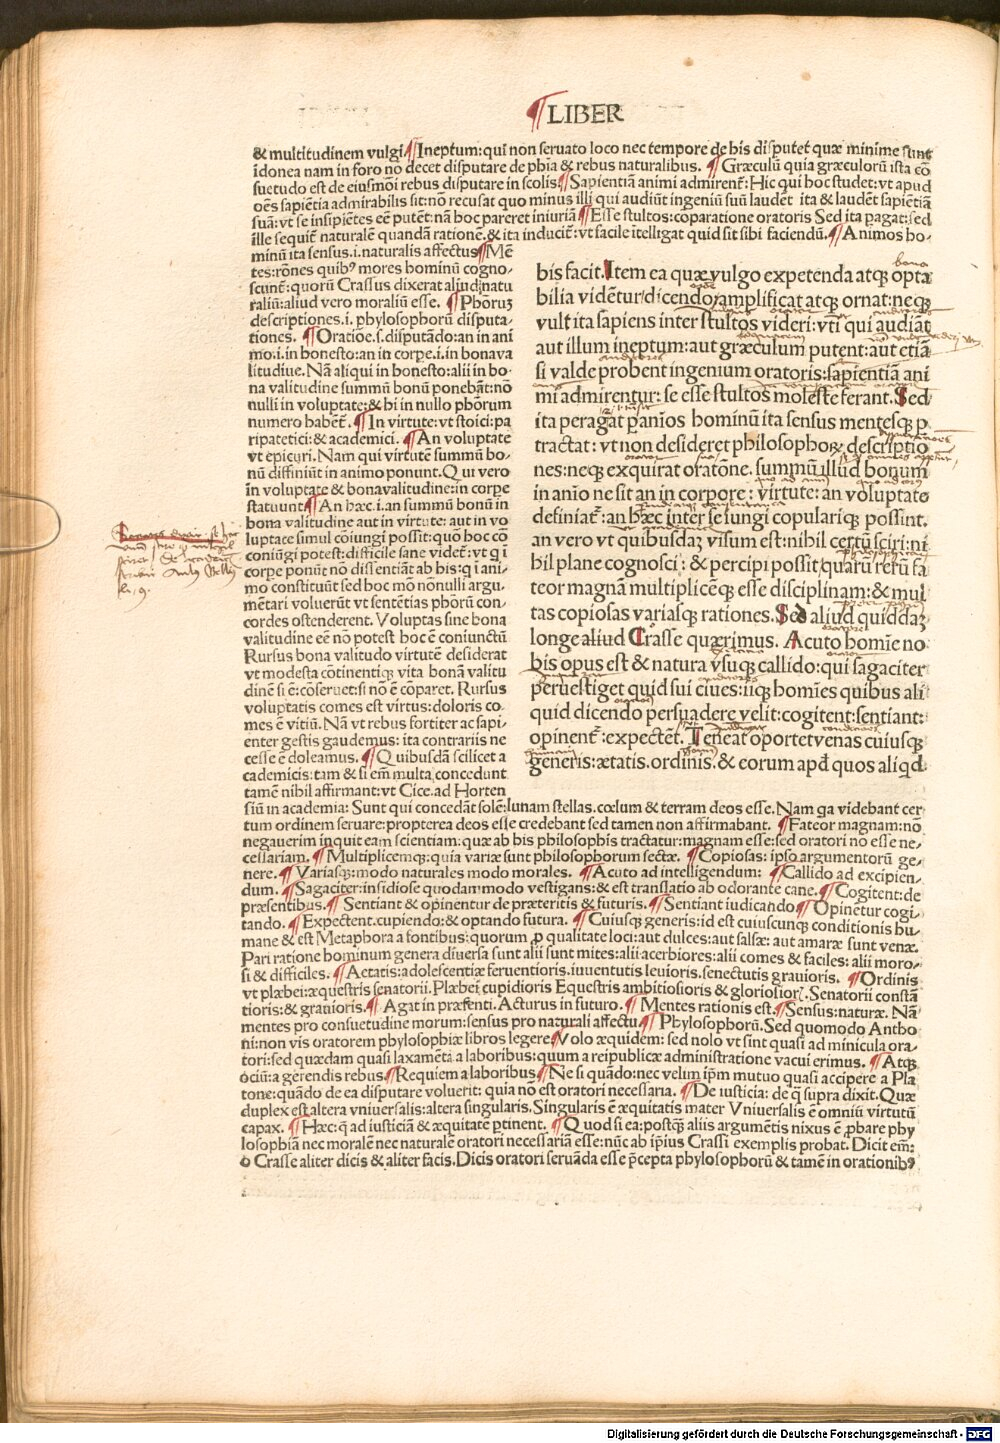 ¶LIBER
& multitudinem vulgi ¶Ineptum: qui non seruato loco nec tempore de his disputet quæ minime sunt
idonea nam in foro nō decet disputare de phia & rebus naturalibus. ¶Græculū quia græculorū ista cō
suetudo est de eiusmōi rebus disputare in scolis ¶Sapientiā animi admirent̃: Hic qui hoc studet: vt apud
oēs sapiētia admirabilis sit: nō recusat quo minus illi qui audiūt ingeniū suū laudēt ita & laudēt sapiētiā
suā: vt se insipiētes eē putēt: nā hoc pareret iniuriā ¶Esse stultos: coparatione oratoris Sed ita pagat: sed
ille sequit̃ naturalē quandā rationē. & ita inducit̃: vt facile itelligat quid sit sibi faciendū. ¶Animos ho-
minū ita sensus. i. naturalis affectus ¶Mē
tes: rōnes quibꝰ mores hominū cogno-
scunt̃: quorū Crassus dixerat aliud natu
raliū: aliud vero moraliū esse. ¶Phōruꝫ
descriptiones. i. phylosophorū disputa-
tiones. ¶Oratiōe. s. disputādo: an in ani
mo. i. in honesto: an in corpe. i. in bonava
litudiue. Nā aliqui in honesto: alii in bo-
na valitudine summū bonū ponebāt: nō
nulli in voluptate: & hi in nullo phōrum
numero habent̃. ¶In virtute: vt stoici: pa
ripatetici: & academici. ¶An voluptate
vt epicuri. Nam qui virtute summū bo-
nū diffiniūt in animo ponunt. Qui vero
in voluptate & bonavalitudine: in corpe
statuunt ¶An hæc. i. an summū bonū in
bona valitudine aut in virtute: aut in vo
luptate simul cōiungi possit: quō hoc cō
coniūgi potest: difficile sane videt̃: vt q i
corpe ponūt nō dissentiāt ab his: q i ani-
mo constituūt sed hoc mō nōnulli argu-
mētari voluerūt vt sentētias phōrū con-
cordes ostenderent. Voluptas sine bona
valitudine eē nō potest hoc ē coniunctū
Rursus bona valitudo virtutē desiderat
vt modesta cōtinentiqꝫ vita bonā valitu
dinē si ē: cōseruet: si nō ē cōparet. Rursus
voluptatis comes est virtus: doloris co-
mes ē vitiū. Nā vt rebus fortiter ac sapi-
enter gestis gaudemus: ita contrariis ne
cesse ē doleamus. ¶Quibusdā scilicet a
cademicis: tam & si em̄ multa concedunt
tamē nihil affirmant: vt Cice. ad Horten
siū in academia: Sunt qui concedāt solē: lunam stellas. cœlum & terram deos esse. Nam qa videbant cer
tum ordinem seruare: propterea deos esse credebant sed tamen non affirmabant. ¶Fateor magnam: nō
negauerim inquit eam scientiam: quæ ab his philosophis tractatur: magnam esse: sed oratori no esse ne-
cessariam. ¶Multiplicemqꝫ: quia variæ sunt philosophorum sectæ. ¶Copiosas: ipso argumentorū ge-
nere. ¶Variasqꝫ: modo naturales modo morales. ¶Acuto ad intelligendum: ¶Callido ad excipien-
dum. ¶Sagaciter: insidiose quodammodo vestigans: & est translatio ab odorante cane. ¶Cogitent: de
præsentibus. ¶Sentiant & opinentur de præteritis & futuris. ¶Sentiant iudicando ¶Opinētur cogi-
tando. ¶Expectent. cupiendo: & optando futura. ¶Cuiusqꝫ generis: id est cuiuscunqꝫ conditionis hu-
mane & est Metaphora a fontibus: quorum ꝓ qualitate loci: aut dulces: aut salsæ: aut amaræ sunt venæ.
Pari ratione hominum genera diuersa sunt alii sunt mites: alii acerbiores: alii comes & faciles: alii moro-
si & difficiles. ¶Aetatis: adolescentiæ feruentioris. iuuentutis leuioris. senectutis grauioris. ¶Ordinis
vt plæbei: æquestris senatorii. Plæbei cupidioris Equestris ambitiosioris & gloriosior̃. Senatorii constā
tioris: & grauioris. ¶Agat in præsenti. Acturus in futuro. ¶Mentes rationis est. ¶Sensus: naturæ. Nā
mentes pro consuetudine morum: sensus pro naturali affectu ¶Phylosophorū. Sed quomodo Antho
ni: non vis oratorem phylosophiæ libros legere ¶Volo æquidem: sed nolo vt sint quasi ad minicula ora-
tori: sed quædam quasi laxamēta a laboribus: quum a reipublicæ administratione vacui erimus. ¶Atqꝫ
ociū: a gerendis rebus ¶Requiem a laboribus ¶Ne si quādo: nec velim ip̄m mutuo quasi accipere a Pla
tone: quādo de ea disputare voluerit: quia nō est oratori necessaria. ¶De iusticia: de q̄ supra dixit. Quæ
duplex est altera vniuersalis: altera singularis. Singularis ē æquitatis mater Vniuersalis ē omniū virtutū
capax. ¶Hæc: q̄ ad iusticiā & æquitatē ꝑtinent. ¶Quod si ea: postqꝫ aliis argumētis nixus ē ꝓbare phy
losophiā nec moralē nec naturalē oratori necessariā esse: nūc ab ipīus Crassi exemplis probat. Dicit em̄:
o Crasse aliter dicis & aliter facis. Dicis oratori seruāda esse p̄cepta phylosophorū & tamē in orationibꝰ
bona
bis facit. Item ea quæ vulgo expetenda atqꝫ opta
bilia vidētur dicendo amplificat atqꝫ ornat: neqꝫ
vult ita sapiens inter stultos videri: vti qui audiāt
aut illum ineptum: aut græculum putent: aut etiā
si valde probent ingenium oratoris: sapientiā ani
mi admirentur: se esse stultos moleste ferant. Sed
ita peragat p anios hominū ita sensus mentesqꝫ p
tractat: vt non desideret philosophoꝝ descriptio
nes: neqꝫ exquirat oratōne. summū illud bonum
in anio ne sit an in corpore: virtute: an voluptate
definiat̃: an hæc inter se iungi copulariqꝫ possint.
an vero vt quibusdaꝫ visum est: nihil certū sciri: ni
hil plane cognosci: & percipi possit: quarū rerū fa
teor magnā multiplicēqꝫ esse disciplinam: & mul
tas copiosas variasqꝫ rationes. Sed aliud quiddaꝫ
longe aliud Crasse quærimus. Acuto homīe no
bis opus est & natura vsuqꝫ callido: qui sagaciter
peruestiget quid sui ciues: iiqꝫ homīes quibus ali
quid dicendo persuadere velit: cogitent: sentiant:
opinent̃: expectēt. Teneat oportet venas cuiusqꝫ
generis: ætatis. ordinis. & eorum apd̄ quos aliqd̄
Digitalisierung gefördert durch die Deutsche Forschungsgemeinschaft - DFG